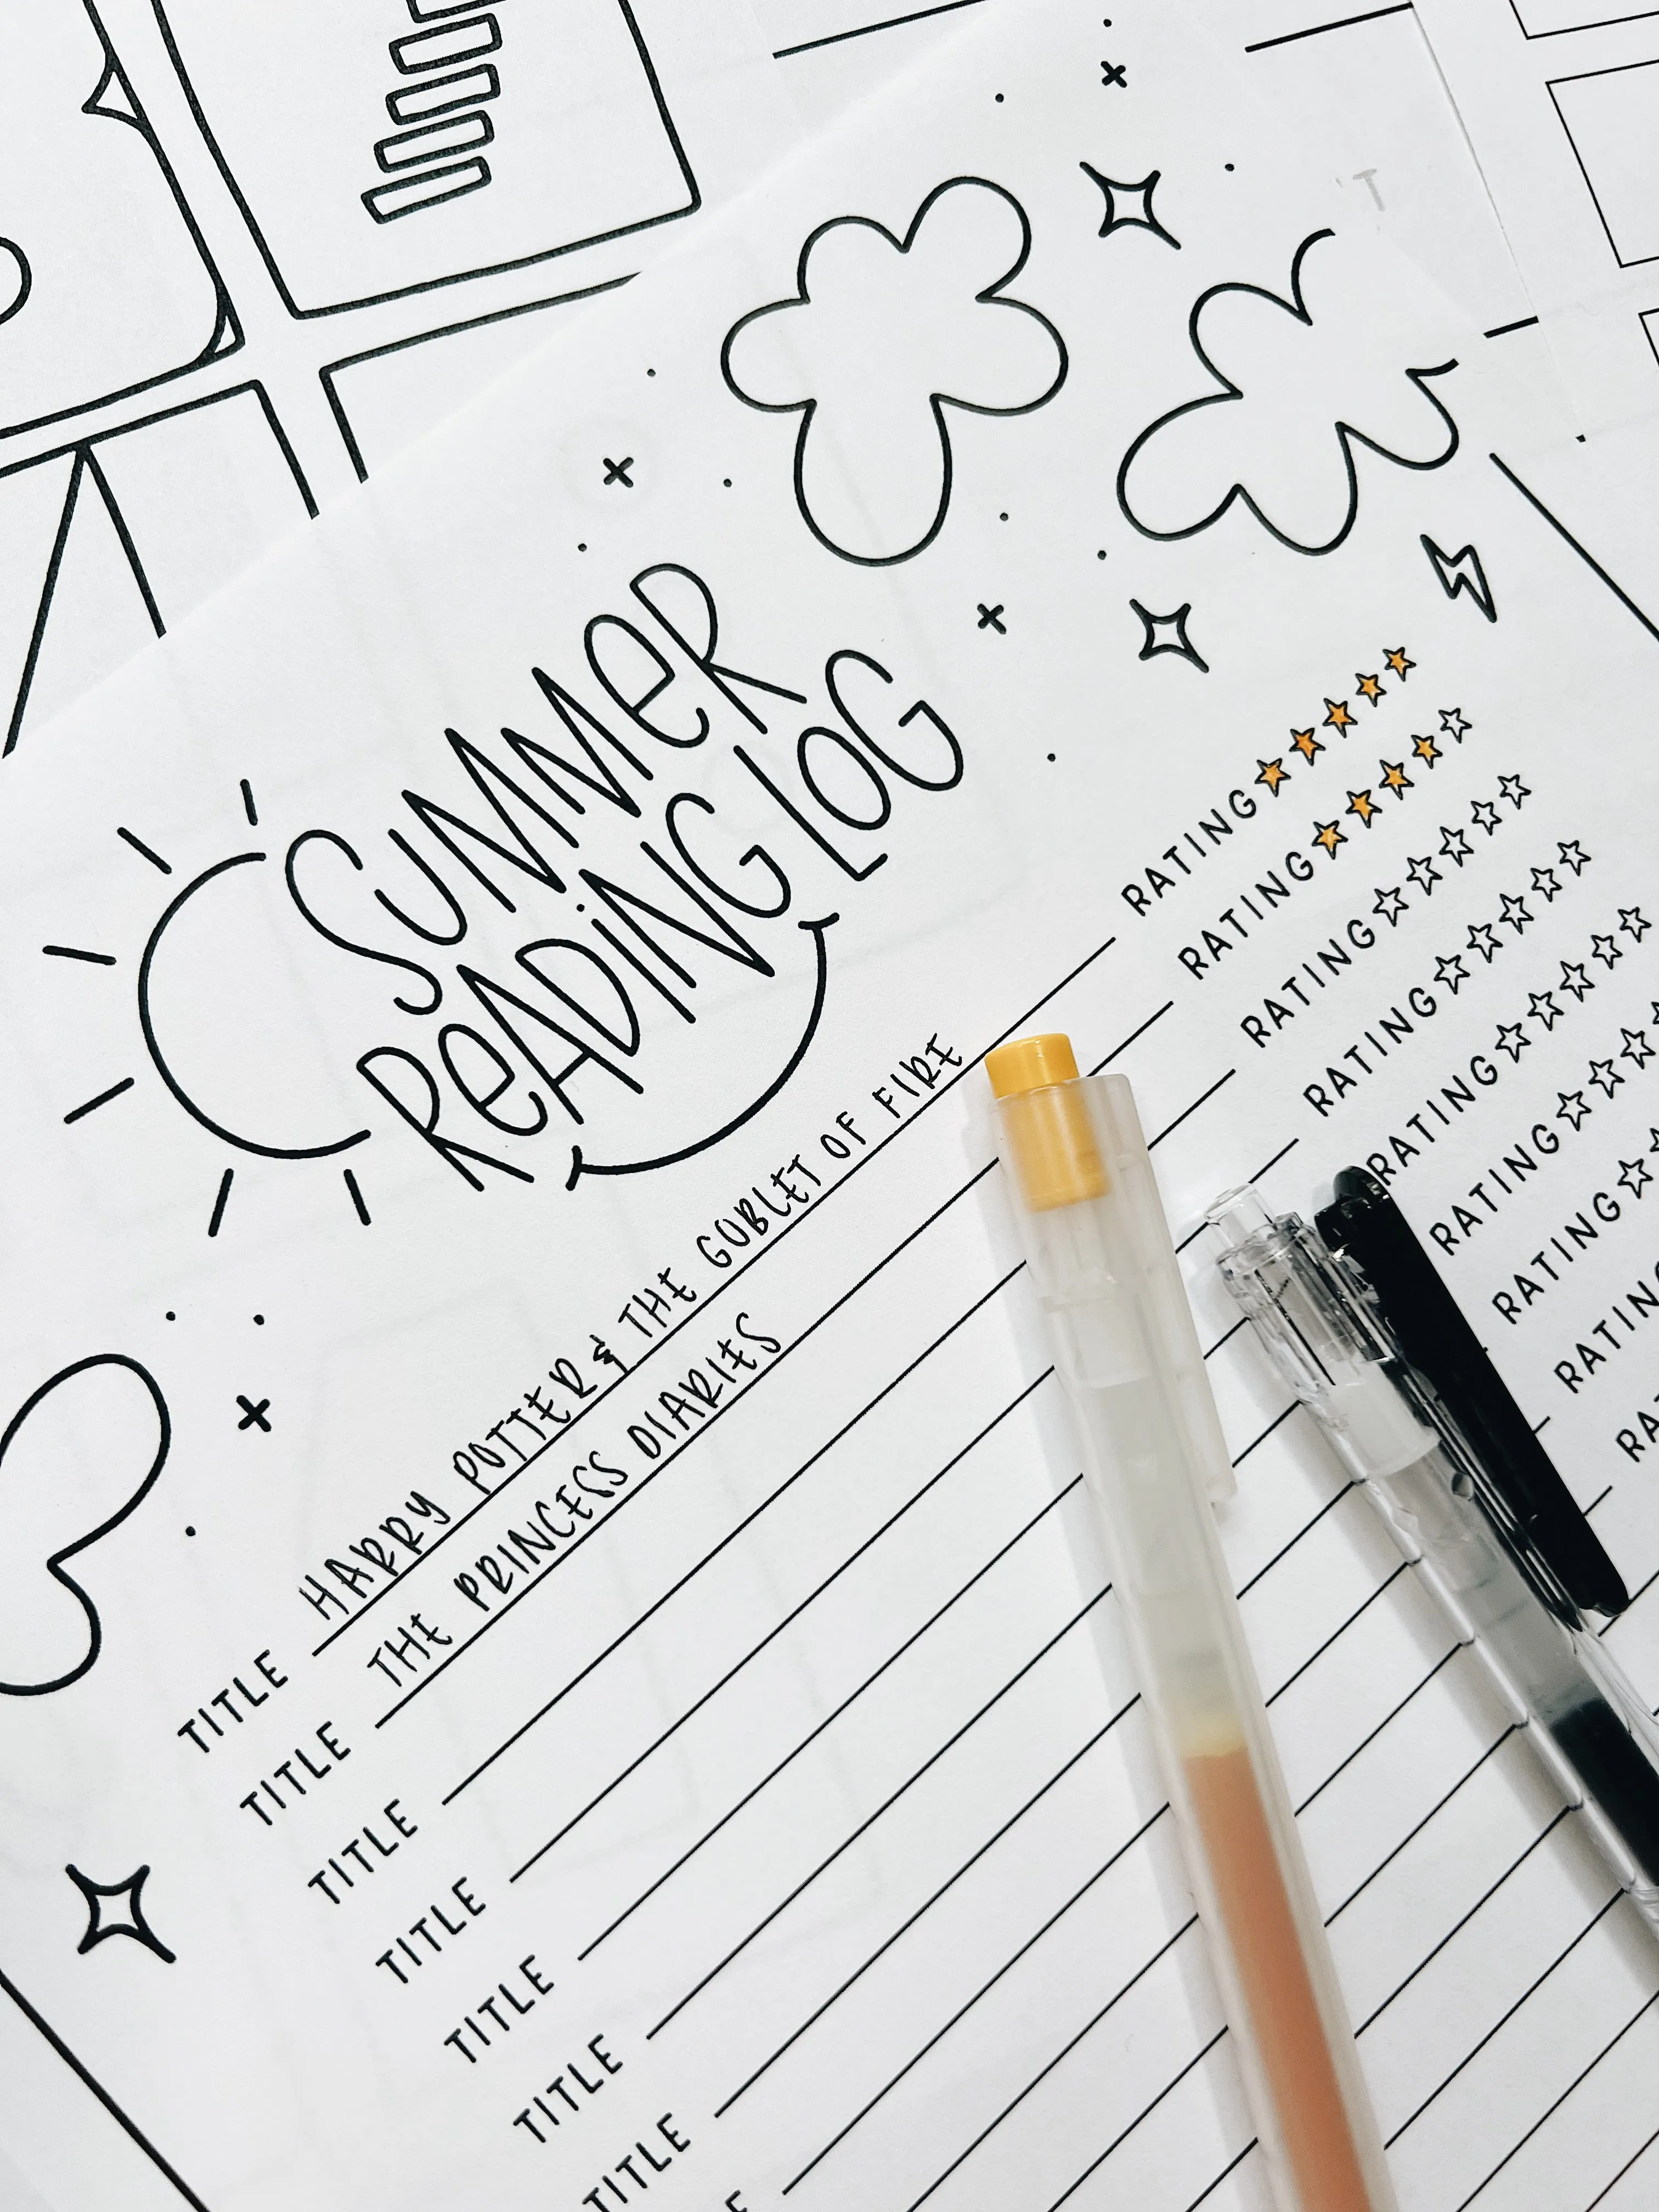 SUMMER
READING LOG
TITLE HARRY POTTER & THE GOBLET OF FIRE RATING
TITLE THE PRINCESS DIARIES RATING
TITLE RATING
TITLE RATING
TITLE RATING
TITLE RATING
TITLE RATING
RATING